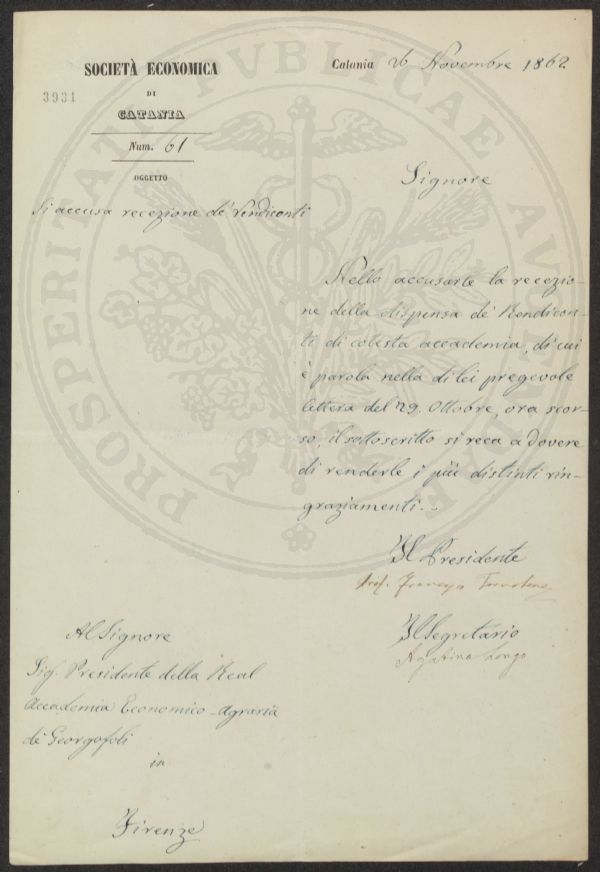 SOCIETÀ ECONOMICA
DI
CATANIA
3931
Num. 61
OGGETTO
Si accusa recezione de' Rendiconti
Catania 26 Novembre 1862
Signore
Nello accusarle la recezio-
ne della dispensa de' Rendicon-
ti di cotesta accademia, di cui
è parola nella di lei pregevole
lettera del 29. Ottobre, ora scor-
so, il sottoscritto si reca a dovere
di renderle i più distinti rin-
graziamenti.
Il Presidente
Prof.
Il Segretario
Longo
Al Signore
Sig. Presidente della Real
Accademia Economico-Agraria
de' Georgofoli
in
Firenze
PROSPERITATI PVBLICAE AVGENDAE